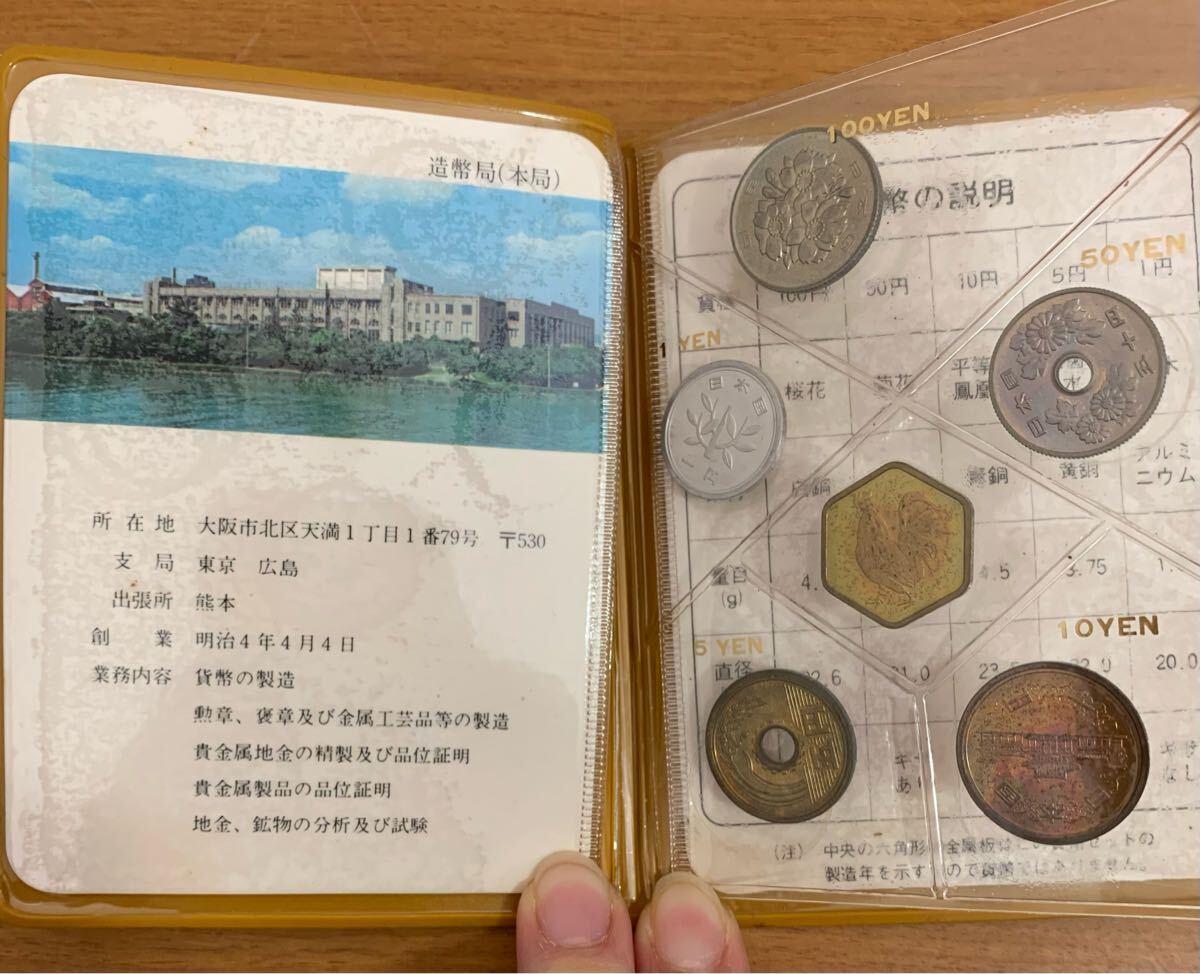 造幣局(本局)
所在地 大阪市北区天満1丁目1番79号 〒530
支局 東京 広島
出張所 熊本
創業 明治4年4月4日
業務内容 貨幣の製造
勲章、褒章及び金属工芸品等の製造
貴金属地金の精製及び品位証明
貴金属製品の品位証明
地金、鉱物の分析及び試験
100YEN
幣の説明
50YEN
100円 50円 10円 5円 1円
YEN
桜花 菊花 平等
鳳凰
日本国
一円
日本国 五十円
青銅 黄銅 アルミ
ニウム
量目
(g)
4. 4.5 3.75 1.
5 YEN
10YEN
直径
22.6 21.0 23.5 22.0 20.0
五円
日本国
なし
(注) 中央の六角形の金属板はこの貨幣セットの
製造年を示すもので貨幣ではありません。